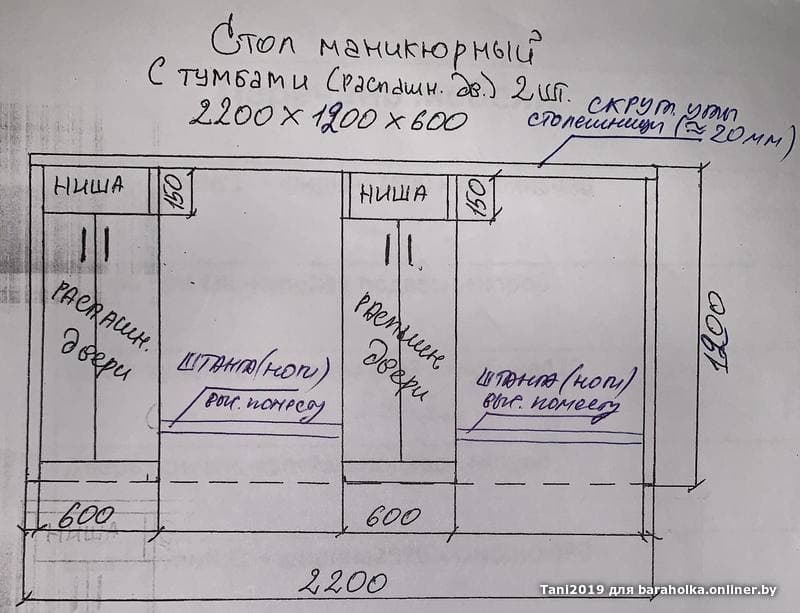 Стол маникюрный
С тумбами (распашн. дв.) 2 шт.
2200 х 1200 х 600
скругл. углы
столешницы (≈20мм)
НИША
150
НИША
150
РАСПАШН.
двери
РАСПАШН.
двери
1200
ШТАНГА (НОГИ)
выс. по месту
ШТАНГА (НОГИ)
выс. по месту
600
600
НИША
2200
Tani2019 для baraholka.onliner.by